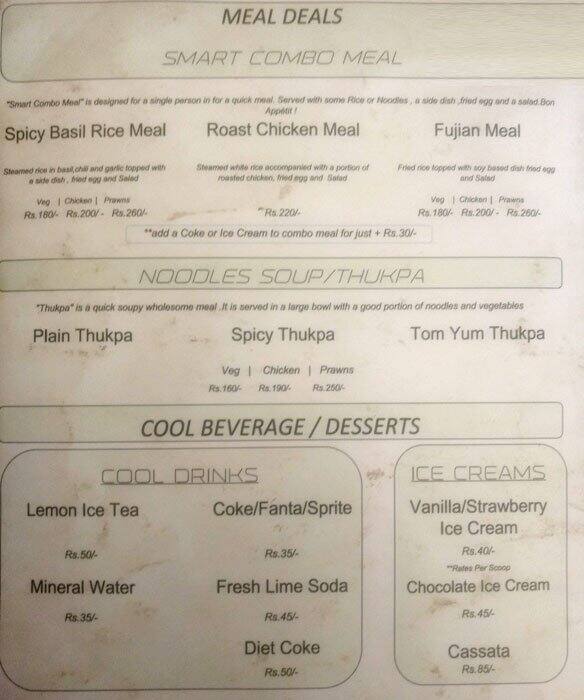 MEAL DEALS
SMART COMBO MEAL
"Smart Combo Meal" is designed for a single person in for a quick meal. Served with some Rice or Noodles , a side dish ,fried egg and a salad.Bon
Appétit !
Spicy Basil Rice Meal Roast Chicken Meal Fujian Meal
Steamed rice in basil,chili and garlic topped with Steamed white rice accompanied with a portion of Fried rice topped with soy based dish fried egg
a side dish , fried egg and Salad roasted chicken, fried egg and Salad and Salad
Veg | Chicken | Prawns Veg | Chicken | Prawns
Rs.180/- Rs.200/- Rs.260/- Rs.220/- Rs.180/- Rs.200/- Rs.260/-
**add a Coke or Ice Cream to combo meal for just + Rs.30/-
NOODLES SOUP/THUKPA
"Thukpa" is a quick soupy wholesome meal .It is served in a large bowl with a good portion of noodles and vegetables
Plain Thukpa Spicy Thukpa Tom Yum Thukpa
Veg | Chicken | Prawns
Rs.160/- Rs.190/- Rs.250/-
COOL BEVERAGE / DESSERTS
COOL DRINKS
Lemon Ice Tea Coke/Fanta/Sprite
Rs.50/- Rs.35/-
Mineral Water Fresh Lime Soda
Rs.35/- Rs.45/-
Diet Coke
Rs.50/-
ICE CREAMS
Vanilla/Strawberry
Ice Cream
Rs.40/-
**Rates Per Scoop
Chocolate Ice Cream
Rs.45/-
Cassata
Rs.85/-